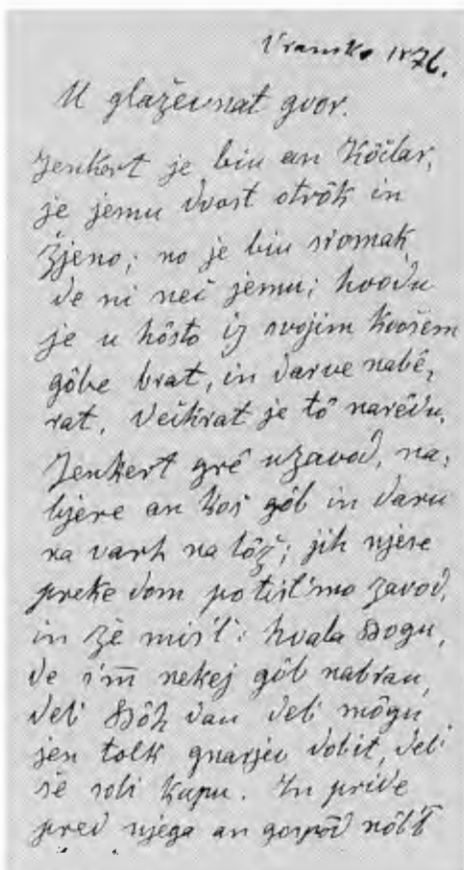 Vransko 1876.
U glaževnat gvor.
Jenkert je biu an Kôčlar,
je jemu dvost otrôk in
žjeno; no je biu sromak,
de ni neč jemu; hvodu
je u hôsto iz svojim kvošem
gôbe brat, in darve nabê,
rat, večkrat je tô narêdu.
Jenkert grê uzavod, na,
bjere an koš gôb in daru
na varh na lôž; jih njese
preke dom po tist'mo zavod,
in žè misl'i: hvala Bogu,
de s'm nekej gôb nabrau,
deb' Bôh dau deb' môgu
jen tolk gnarjeu dobit, deb'
sè soli kupu. In pride
pred njega an gospôd nôbl